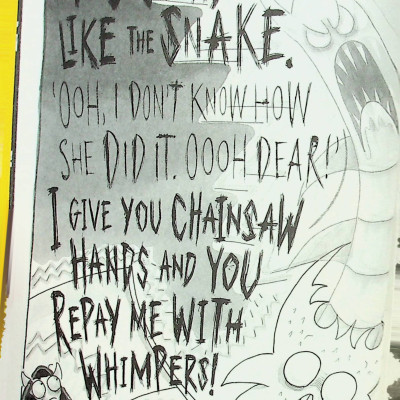 LIKE THE SNAKE.
'OOH, I DON'T KNOW HOW
SHE DID IT. OOOH DEAR!'
I GIVE YOU CHAINSAW
HANDS AND YOU
REPAY ME WITH
WHIMPERS!